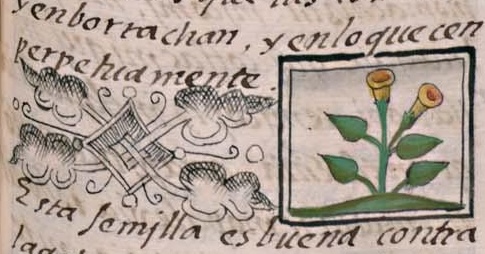 yenborrachan, yenloquecen
perpetuamente.
Esta semilla es buena contra